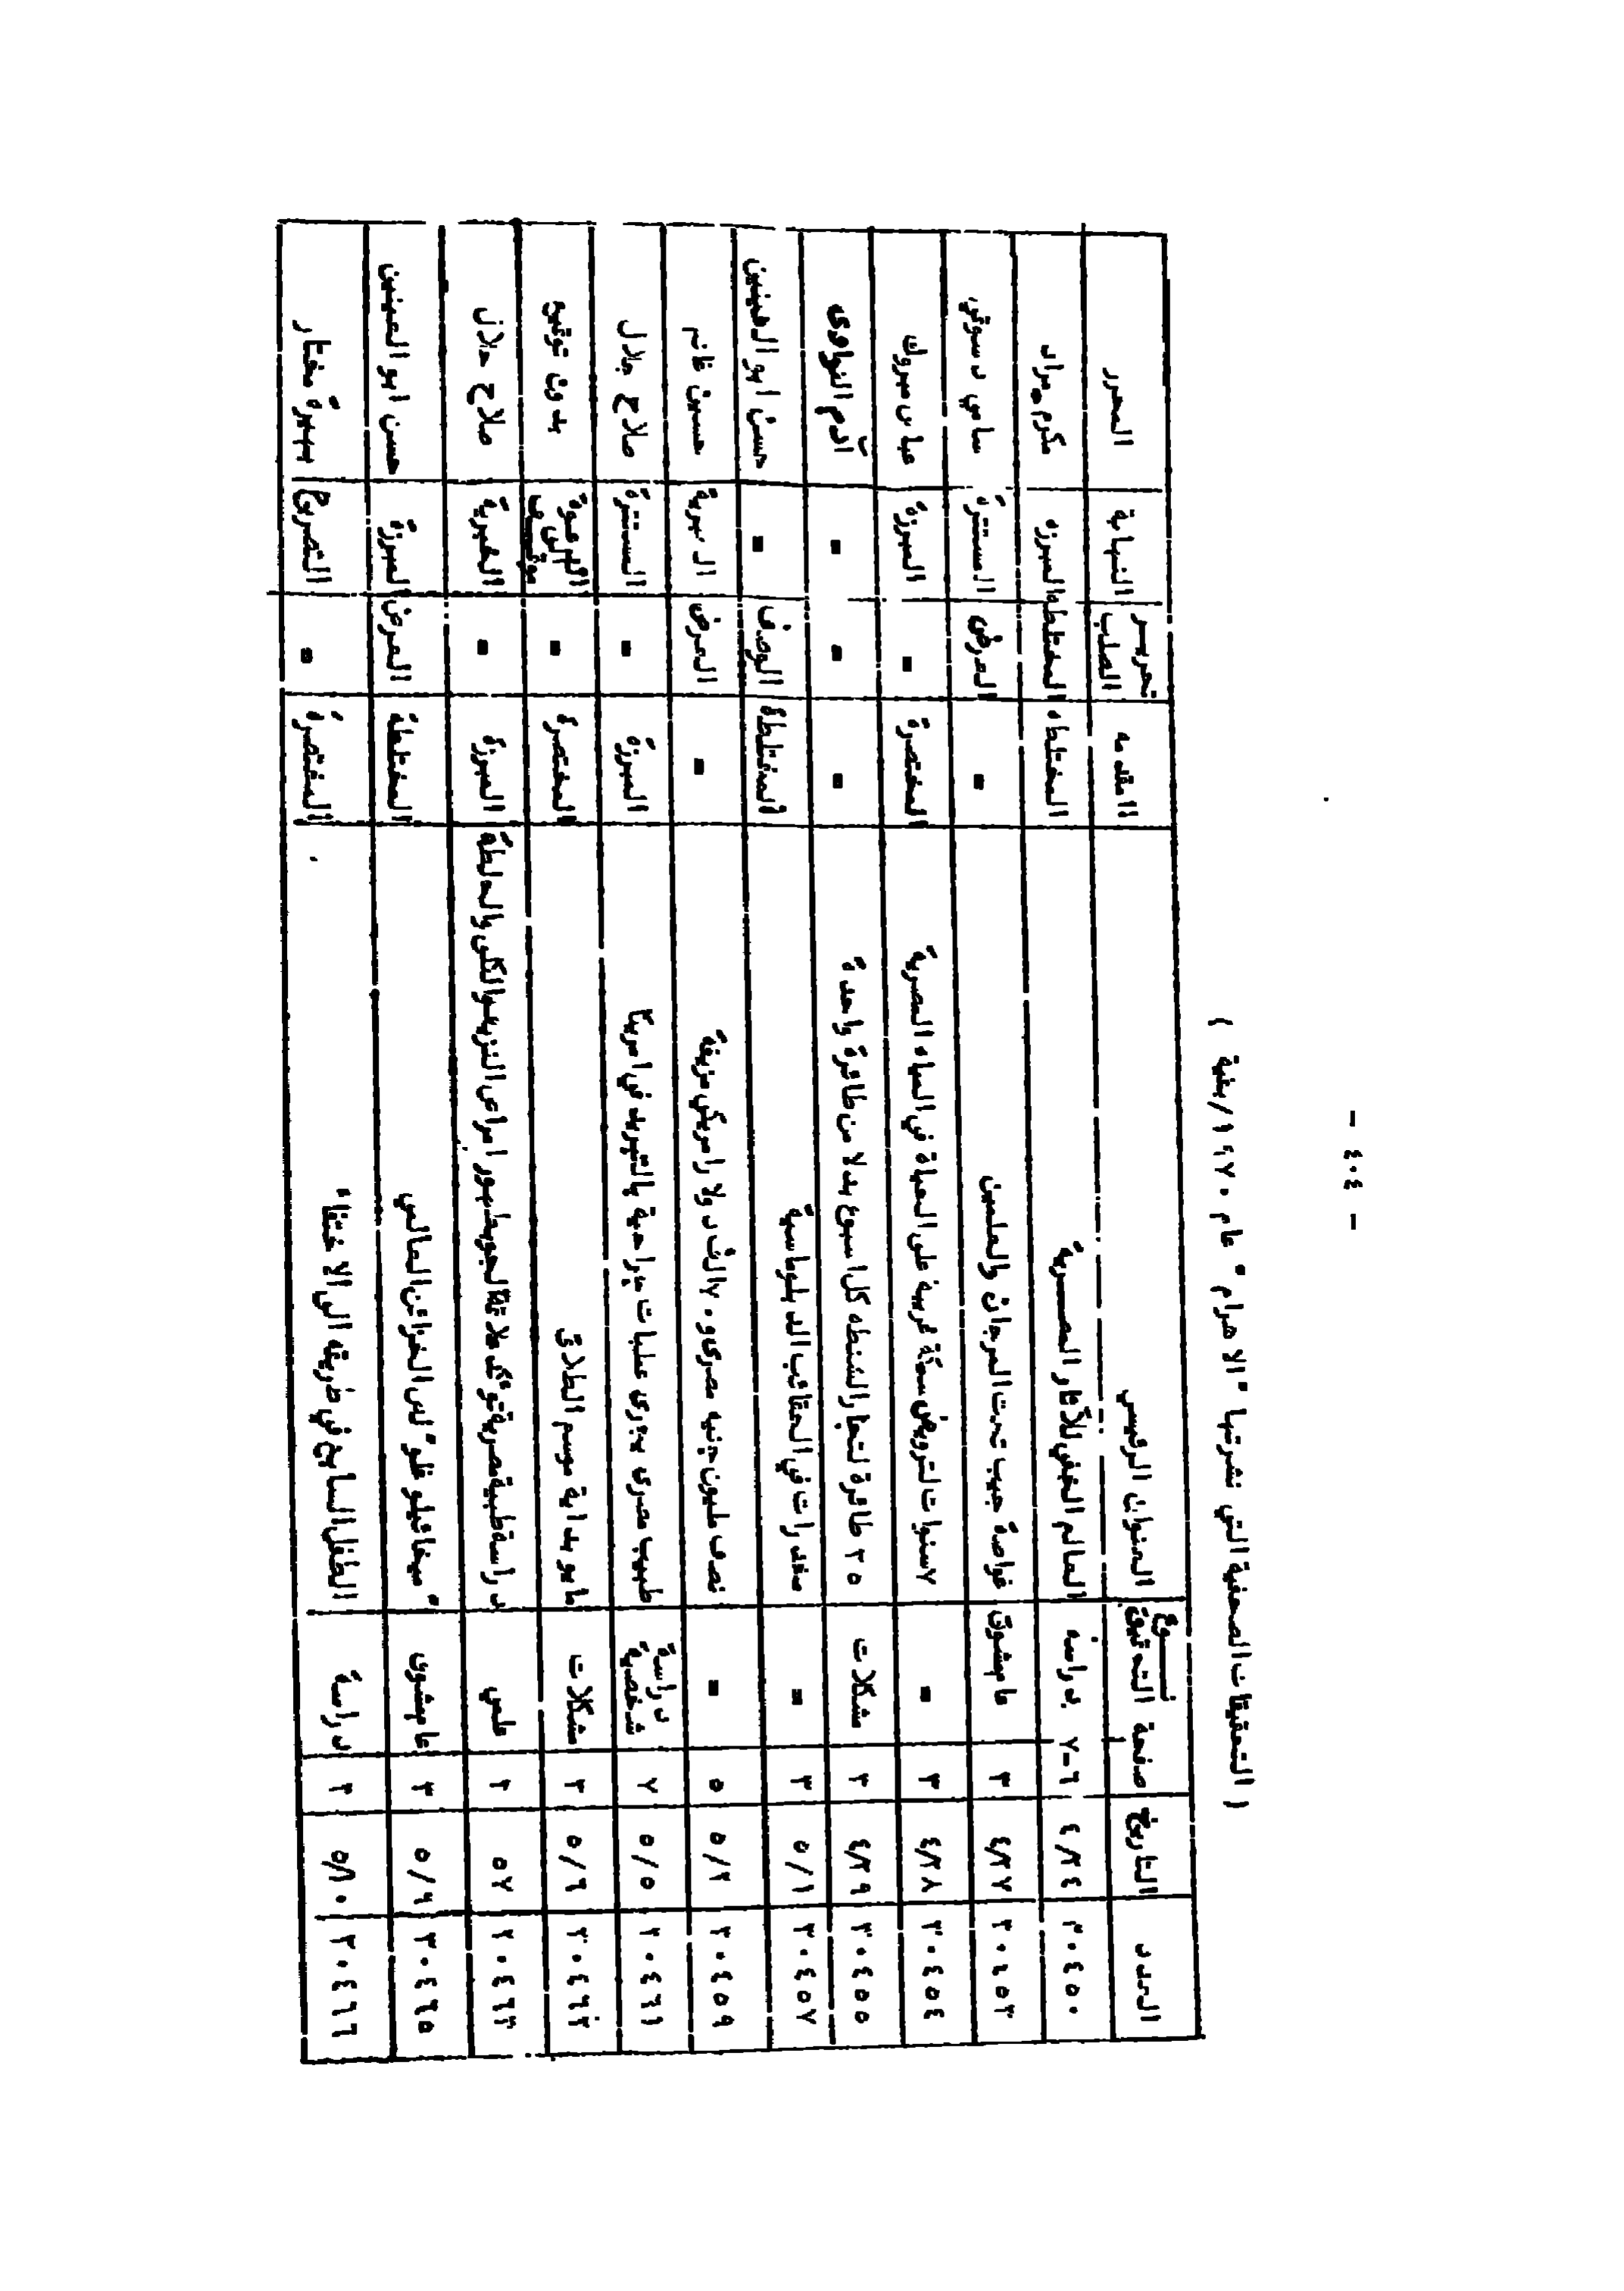 - ٤٠٤ -
( التحقيقات الصحفية التي نشرتها " الاهرام " عام ١٩٧٠/بقية )
العدد التاريخ صفحة نوع التحقيق العنوان الرئيسي المقدمه تحرير الصلب النهاية المحرر
٣٠٤٥٠ ٤/٢٤ ٦-٧ دراسه العالم الخفي للآثار المصرية المختلطه المختلطه المبرزه مكرم مراد
٣٠٤٥٣ ٤/٢٧ ٣ ما يشوق غواصة جيب تحت المرجان والعلمين " العرض المستترة سامي دسوقي
٣٠٤٥٤ ٤/٢٨ ٣ " ٧ سنوات لترويض سمكة غريبه على الحياة في المياه المصرية المختصرة " المبرزة عباس مبروك
٣٠٤٥٥ ٤/٢٩ ٣ مشكلات ٣٥ طائرة لتجار الشنطه كل اسبوع بدلا من طائرة واحدة " " " آدم النواوى
٣٠٤٥٧ ٥/١ ٣ " مخدرات في الحقائب الدبلوماسية المختلطة الوصف " حسن ابو العينين
٣٠٤٥٩ ٥/٣ ٥ " نصف مليون جنيه مصرى و٧٠ الف دولار امريكي مزيفة " العرض الخبرية حسين غانم
٣٠٤٦١ ٥/٥ ٧ دراسة شخصية طبيب مصرى يجرى عمليات جراحية بالتبريد في امريكا المبرزة " المستترة صلاح جلال
٣٠٤٦٢ ٥/٦ ٣ مشكلات مايو بداية موسم الطلاق المختصرة " بدون توقيع
٣٠٤٦٣ ٥٧ ٣ علمي دراسة طبية مصرية تؤكد علاقة الجو بظهور امراض النزيف والكلى والجلطة المبرزة " الخبرية صلاح جلال
٣٠٤٦٥ ٥/٩ ٣ ما يشوق " ميخائيلو غلو " لص الخزائن العالمي المختلطة العرض المبرزة حسن ابو العينين
٣٠٤٦٦ ٥/١٠ ٣ دراسة الطفل السابع في طريقه الى الاختفاء المختصرة " التصريح بهيرة مختار